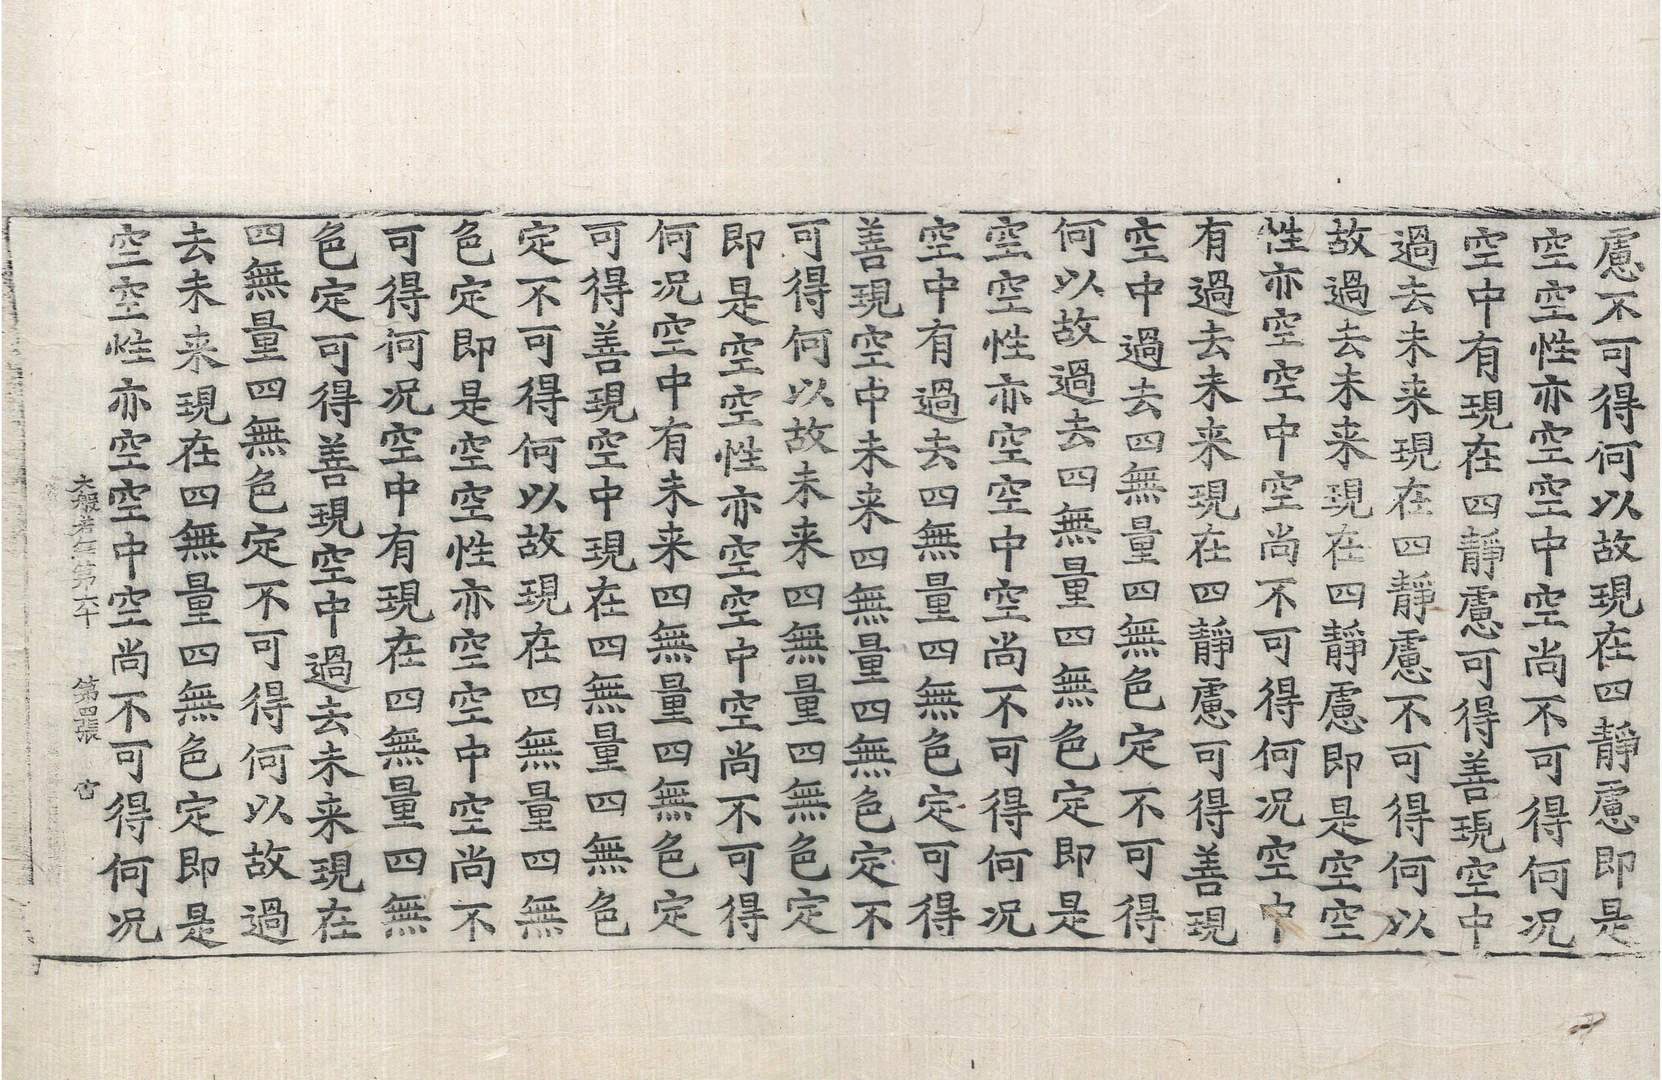 慮不可得何以故現在四靜慮即是
空空性亦空空中空尚不可得何况
空中有現在四靜慮可得善現空中
過去未来現在四靜慮不可得何以
故過去未来現在四靜慮即是空空
性亦空空中空尚不可得何况空中
有過去未来現在四靜慮可得善現
空中過去四無量四無色定不可得
何以故過去四無量四無色定即是
空空性亦空空中空尚不可得何况
空中有過去四無量四無色定可得
善現空中未来四無量四無色定不
可得何以故未来四無量四無色定
即是空空性亦空空中空尚不可得
何况空中有未来四無量四無色定
可得善現空中現在四無量四無色
定不可得何以故現在四無量四無
色定即是空空性亦空空中空尚不
可得何况空中有現在四無量四無
色定可得善現空中過去未来現在
四無量四無色定不可得何以故過
去未来現在四無量四無色定即是
空空性亦空空中空尚不可得何况
大般若経第六十 第四張